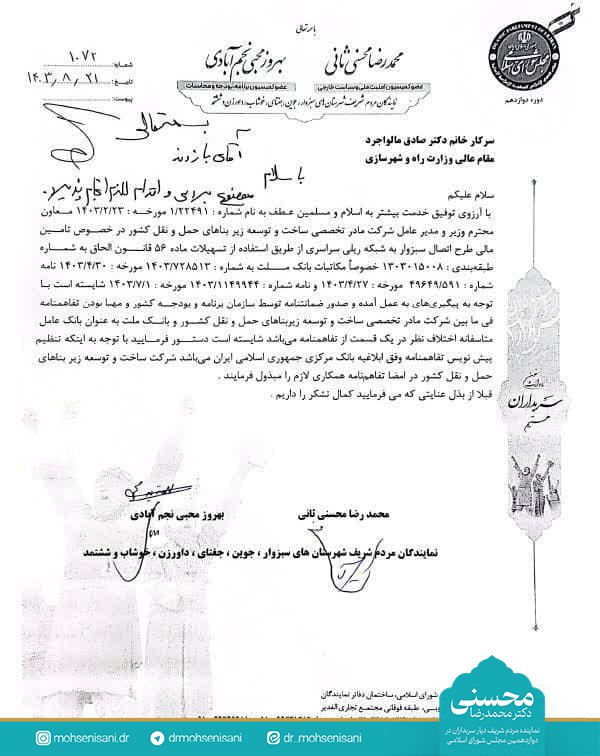 باسمه تعالی
ISLAMIC PARLIAMENT OF I.R.IRAN
مجلس شورای اسلامی
دوره دوازدهم
محمدرضا محسنی ثانی
عضو کمیسیون امنیت ملی و سیاست خارجی
بهروز محبی نجم آبادی
عضو کمیسیون برنامه بودجه و محاسبات
نمایندگان مردم شریف شهرستان های سبزوار، جوین، جغتای، خوشاب، داورزن و ششتمد
شماره: ۱۰۷۲
تاریخ: ۱۴۰۳٫۸٫۲۱
پیوست:
بسمه تعالی
با سلام
سرکار خانم دکتر صادق مالواجرد
مقام عالی وزارت راه و شهرسازی
سلام علیکم
با آرزوی توفیق خدمت بیشتر به اسلام و مسلمین عطف به نامه شماره : ۱/۲۲۴۹۱ مورخه : ۱۴۰۳/۲/۲۳ معاون
محترم وزیر و مدیر عامل شرکت مادر تخصصی ساخت و توسعه زیر بناهای حمل و نقل کشور در خصوص تامین
مالی طرح اتصال سبزوار به شبکه ریلی سراسری از طریق استفاده از تسهیلات ماده ۵۶ قانون الحاق به شماره
طبقه‌بندی : ۱۳۰۳۰۱۵۰۰۸ خصوصاً مکاتبات بانک ملت به شماره : ۱۴۰۳/۷۲۸۵۱۳ مورخه : ۱۴۰۳/۴/۳۰ نامه
شماره : ۴۹۶۴۹/۵۹۱ مورخه : ۱۴۰۳/۴/۲۷ و نامه شماره : ۱۴۰۳/۱۱۴۹۹۴۴ مورخه : ۱۴۰۳/۷/۱ شایسته است با
توجه به پیگیری‌های به عمل آمده و صدور ضمانتنامه توسط سازمان برنامه و بودجه کشور و مهیا بودن تفاهمنامه
فی ما بین شرکت مادر تخصصی ساخت و توسعه زیربناهای حمل و نقل کشور و بانک ملت به عنوان بانک عامل
متاسفانه اختلاف نظر در یک قسمت از تفاهمنامه می‌باشد شایسته است دستور فرمایید با توجه به اینکه تنظیم
پیش نویس تفاهمنامه وفق ابلاغیه بانک مرکزی جمهوری اسلامی ایران می‌باشد شرکت ساخت و توسعه زیر بناهای
حمل و نقل کشور در امضا تفاهمنامه همکاری لازم را مبذول فرمایند .
قبلا از بذل عنایتی که می فرمایید کمال تشکر را داریم .
سربداران
محمد رضا محسنی ثانی
بهروز محبی نجم آبادی
نمایندگان مردم شریف شهرستان های سبزوار ، جوین ، جغتای ، داورزن ، خوشاب و ششتمد
شورای اسلامی، ساختمان دفاتر نمایندگان
طبقه فوقانی مجتمع تجاری الغدیر
محسنی
دکتر محمدرضا
نماینده مردم شریف دیار سربداران در
دوازدهمین مجلس شورای اسلامی
mohsenisani.dr
drmohsenisani
dr_mohsenisani